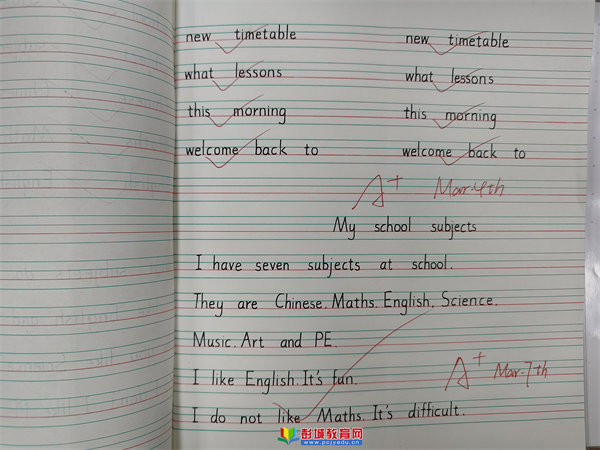 new timetable new timetable
what lessons what lessons
this morning this morning
welcome back to welcome back to
A+ Mar.4th
My school subjects
I have seven subjects at school.
They are Chinese, Maths, English, Science,
Music, Art and PE.
I like English. It's fun.
A+ Mar.7th
I do not like Maths. It's difficult.
彭城教育网
www.pcjyedu.cn